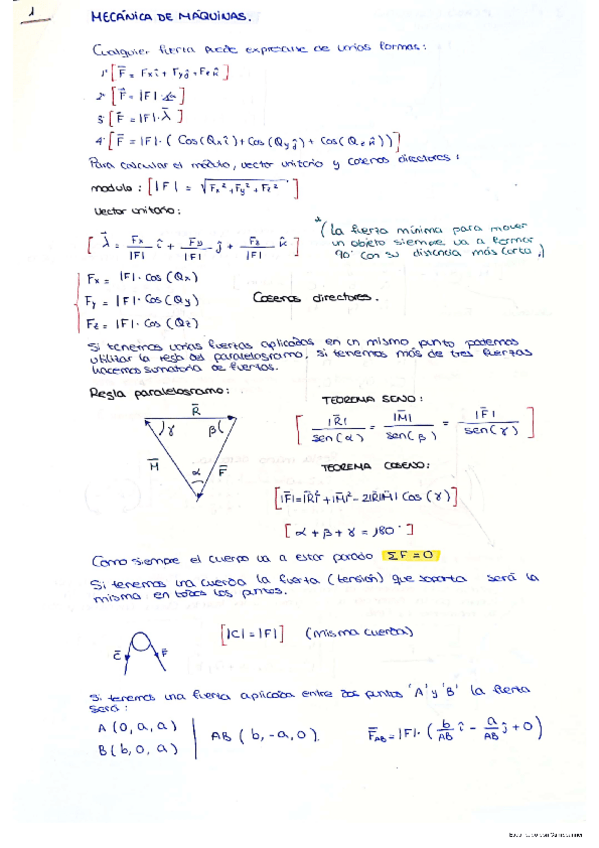 1
MECÁNICA DE MÁQUINAS.
Cualquier fuerza puede expresarse de varias formas:
1º [F̄ = Fxî + Fyĵ + Fzk̂]
2º [F̄ = |F| ∡]
3º [F̄ = |F|·λ̄]
4º [F̄ = |F|·( Cos(Qxî) + Cos(Qyĵ) + Cos(Qzk̂))]
Para calcular el módulo, vector unitario y cosenos directores:
modulo: [|F| = √Fx²+Fy²+Fz²]
Vector unitario:
[λ̄ = Fx/|F| î + Fy/|F| ĵ + Fz/|F| k̂]
*(La fuerza mínima para mover
un objeto siempre va a formar
90° con su distancia más corta.)
Fx = |F|·Cos (Qx)
Fy = |F|·Cos (Qy)
Fz = |F|·Cos (Qz)
Cosenos directores.
Si tenemos varias fuerzas aplicadas en un mismo punto podemos
utilizar la regla del paralelogramo, si tenemos más de tres fuerzas
hacemos sumatoria de fuerzas.
Regla paralelogramo:
R̄
γ β
M̄ α F̄
TEOREMA SENO:
[|R̄|/sen(α) = |M̄|/sen(β) = |F̄|/sen(γ)]
TEOREMA COSENO:
[|F̄|=|R̄|²+|M̄|²-2|R̄||M̄| Cos(γ)]
[α+β+γ = 180°]
Como siempre el cuerpo va a estar parado ΣF = 0
Si tenemos una cuerda la fuerza (tensión) que soporta será la
misma en todos los puntos.
C̄ F̄
[|C| = |F|] (misma cuerda)
Si tenemos una fuerza aplicada entre dos puntos 'A' y 'B' la fuerza
será:
A (0, a, a)
B (b, 0, a)
AB (b, -a, 0).
F̄AB = |F|·(b/AB î - a/AB ĵ + 0)